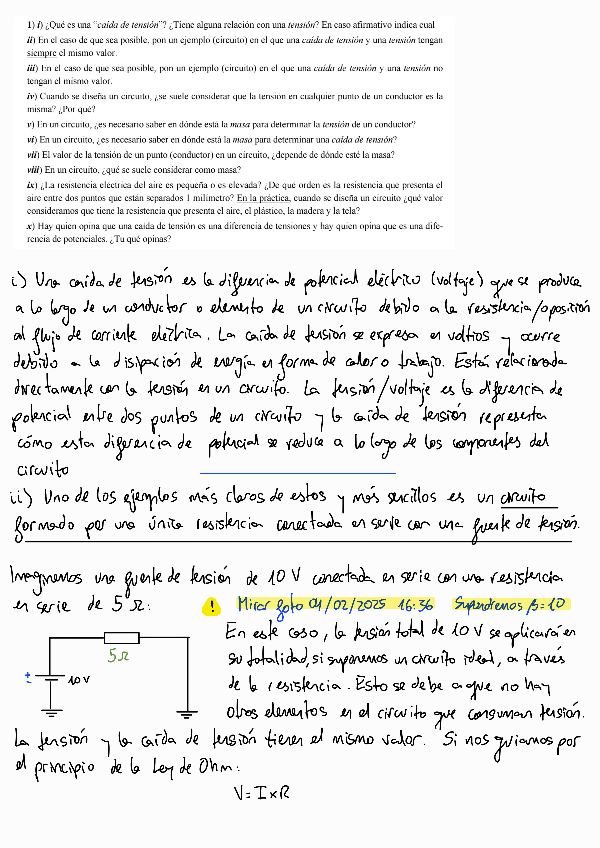 1) i) ¿Qué es una "caída de tensión"? ¿Tiene alguna relación con una tensión? En caso afirmativo indica cual
ii) En el caso de que sea posible, pon un ejemplo (circuito) en el que una caída de tensión y una tensión tengan
siempre el mismo valor.
iii) En el caso de que sea posible, pon un ejemplo (circuito) en el que una caída de tensión y una tensión no
tengan el mismo valor.
iv) Cuando se diseña un circuito, ¿se suele considerar que la tensión en cualquier punto de un conductor es la
misma? ¿Por qué?
v) En un circuito, ¿es necesario saber en dónde está la masa para determinar la tensión de un conductor?
vi) En un circuito, ¿es necesario saber en dónde está la masa para determinar una caída de tensión?
vii) El valor de la tensión de un punto (conductor) en un circuito, ¿depende de dónde esté la masa?
viii) En un circuito, ¿qué se suele considerar como masa?
ix) ¿La resistencia eléctrica del aire es pequeña o es elevada? ¿De qué orden es la resistencia que presenta el
aire entre dos puntos que están separados 1 milímetro? En la práctica, cuando se diseña un circuito ¿qué valor
consideramos que tiene la resistencia que presenta el aire, el plástico, la madera y la tela?
x) Hay quien opina que una caída de tensión es una diferencia de tensiones y hay quien opina que es una dife-
rencia de potenciales. ¿Tu qué opinas?
i) Una caída de tensión es la diferencia de potencial eléctrico (voltaje) que se produce
a lo largo de un conductor o elemento de un circuito debido a la resistencia/oposición
al flujo de corriente eléctrica. La caída de tensión se expresa en voltios y ocurre
debido a la disipación de energía en forma de calor o trabajo. Están relacionada
directamente con la tensión en un circuito. La tensión/voltaje es la diferencia de
potencial entre dos puntos de un circuito y la caída de tensión representa
cómo esta diferencia de potencial se reduce a lo largo de los componentes del
circuito
ii) Uno de los ejemplos más claros de estos y más sencillos es un circuito
formado por una única resistencia conectada en serie con una fuente de tensión.
Imaginemos una fuente de tensión de 10 V conectada en serie con una resistencia
en serie de 5 Ω:
! Mirar foto 01/02/2025 16:36 Supondremos β=10
5Ω
±
10 V
En este caso, la tensión total de 10 V se aplicará en
su totalidad, si suponemos un circuito ideal, a través
de la resistencia. Esto se debe a que no hay
otros elementos en el circuito que consuman tensión.
La tensión y la caída de tensión tienen el mismo valor. Si nos guiamos por
el principio de la Ley de Ohm:
V=I×R